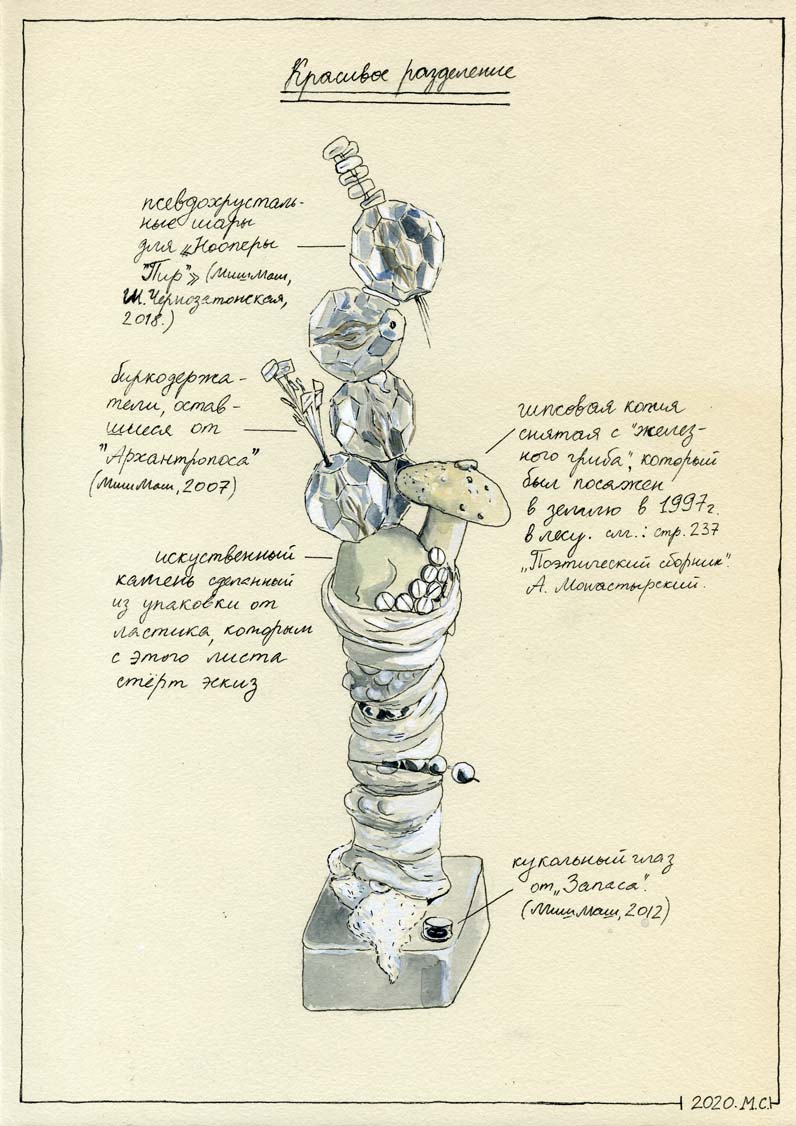 Красивое разделение
псевдохрусталь-
ные шары
для „Нооперы
"Пир"» (МишМаш,
М. Чернозатонская,
2018.)
биркодержа-
тели, остав-
шиеся от
"Архантропоса"
(МишМаш, 2007)
искуственный
камень сделанный
из упаковки от
ластика, которым
с этого листа
стёрт эскиз
гипсовая копия
снятая с "желез-
ного гриба", который
был посажен
в землю в 1997г.
в лесу. см.: стр. 237
„Поэтический сборник".
А. Монастырский.
кукольный глаз
от „Запаса".
(МишМаш, 2012)
2020. М.С.